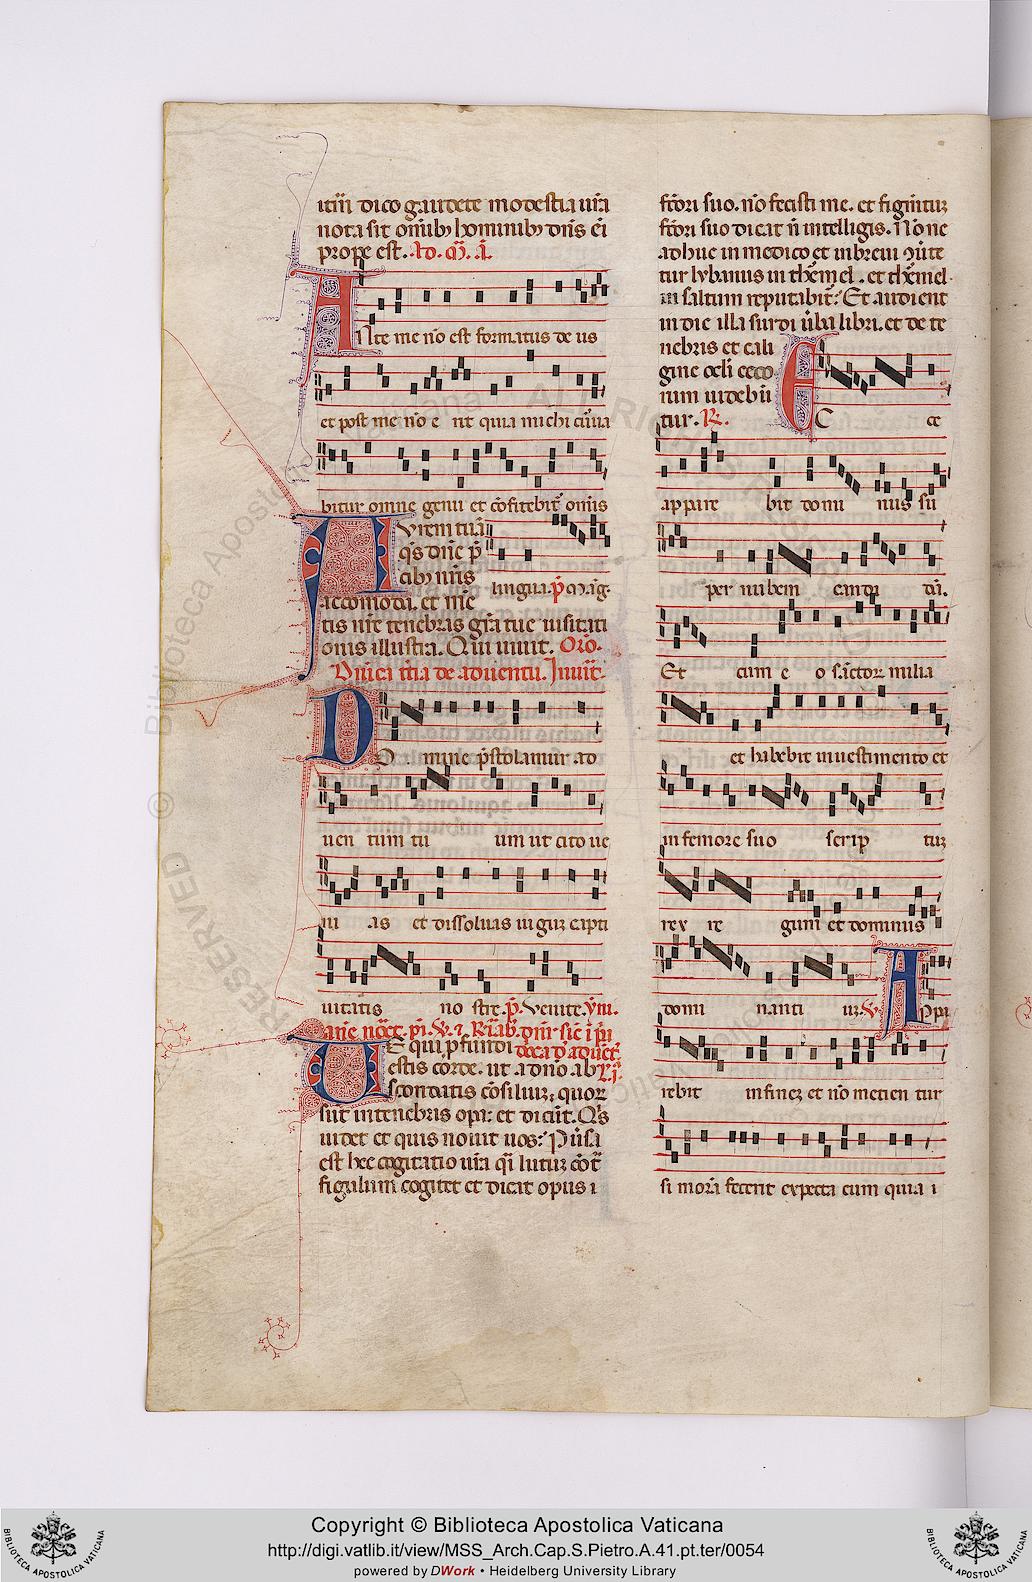 itũ dico gaudete modestia ur̃a
nota sit omĩbȝ hominibȝ dñs ẽi
prope est. Ad. Q͂. ĩ.
Ante me nõ est formatus de us
et post me nõ e rit quia michi cũua
bitur omne genu et cõfitebit̃ omĩs
lingua. p̃ Mãg.
Aurem tuã
q̃s dñe p̃
cibȝ nr̃is
accomoda. et mẽ
tis nr̃e tenebras grã tue uisitati
onis illustra. Qui uiuit. Orõ.
Dñica tr̃ia de aduentu. Inuit̃.
Do mine p̃stolamur ad
uen tum tu um ut cito ue
ni as et dissoluas iugũ capti
uitatis no stre. p̃. Venite. ym̃.
Ve qui p̃fundi
estis corde. ut a dño ab
scondatis cõsiliũ, quoꝝ
sũt in tenebris opa: et dicũt. Qis
uidet et quis nouit nos: Puersa
est hec cogitatio ur̃a q̃i lutũ cõt̃
figulum cogitet et dicat opus i
fcõri suo. nõ fecisti me. et figm̃tũ
fcõri suo dicat ñ intelligis. Nõne
adhuc in modico et in breui ꝯuĩte
tur lybanus in chr̃mel. et chr̃mel
in saltum reputabit̃: Et audient
in die illa surdi ũba libri. et de te
nebris et cali
gine oculi ceco
rum uidebũ
tur. R̃.
Ec ce
appare bit domi nus sũ
per nubem candi dã.
Et cum e o sãctoꝝ milia
et habebit in uestimento et
in femore suo scrip tũ
rex re gum et dominus
domi nanti ũ. V̷. Appa
rebit in finẽ et nõ mencien tur
si morã fecerit expecta eum quia i
Copyright © Biblioteca Apostolica Vaticana
http://digi.vatlib.it/view/MSS_Arch.Cap.S.Pietro.A.41.pt.ter/0054
powered by DWork • Heidelberg University Library
BIBLIOTECA APOSTOLICA VATICANA
BIBLIOTECA APOSTOLICA VATICANA